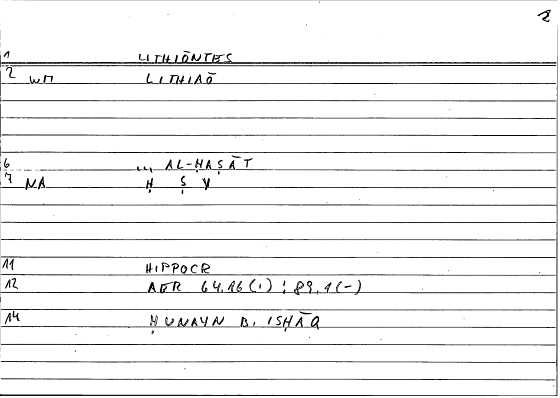 2
1 LITHIŌNTES
2 WM LITHIAŌ
6 ... AL-ḤAṢĀT
7 NA Ḥ Ṣ Y
11 HIPPOCR
12 AER 64.16(1) : 89.1(-)
14 ḤUNAYN B. ISḤĀQ